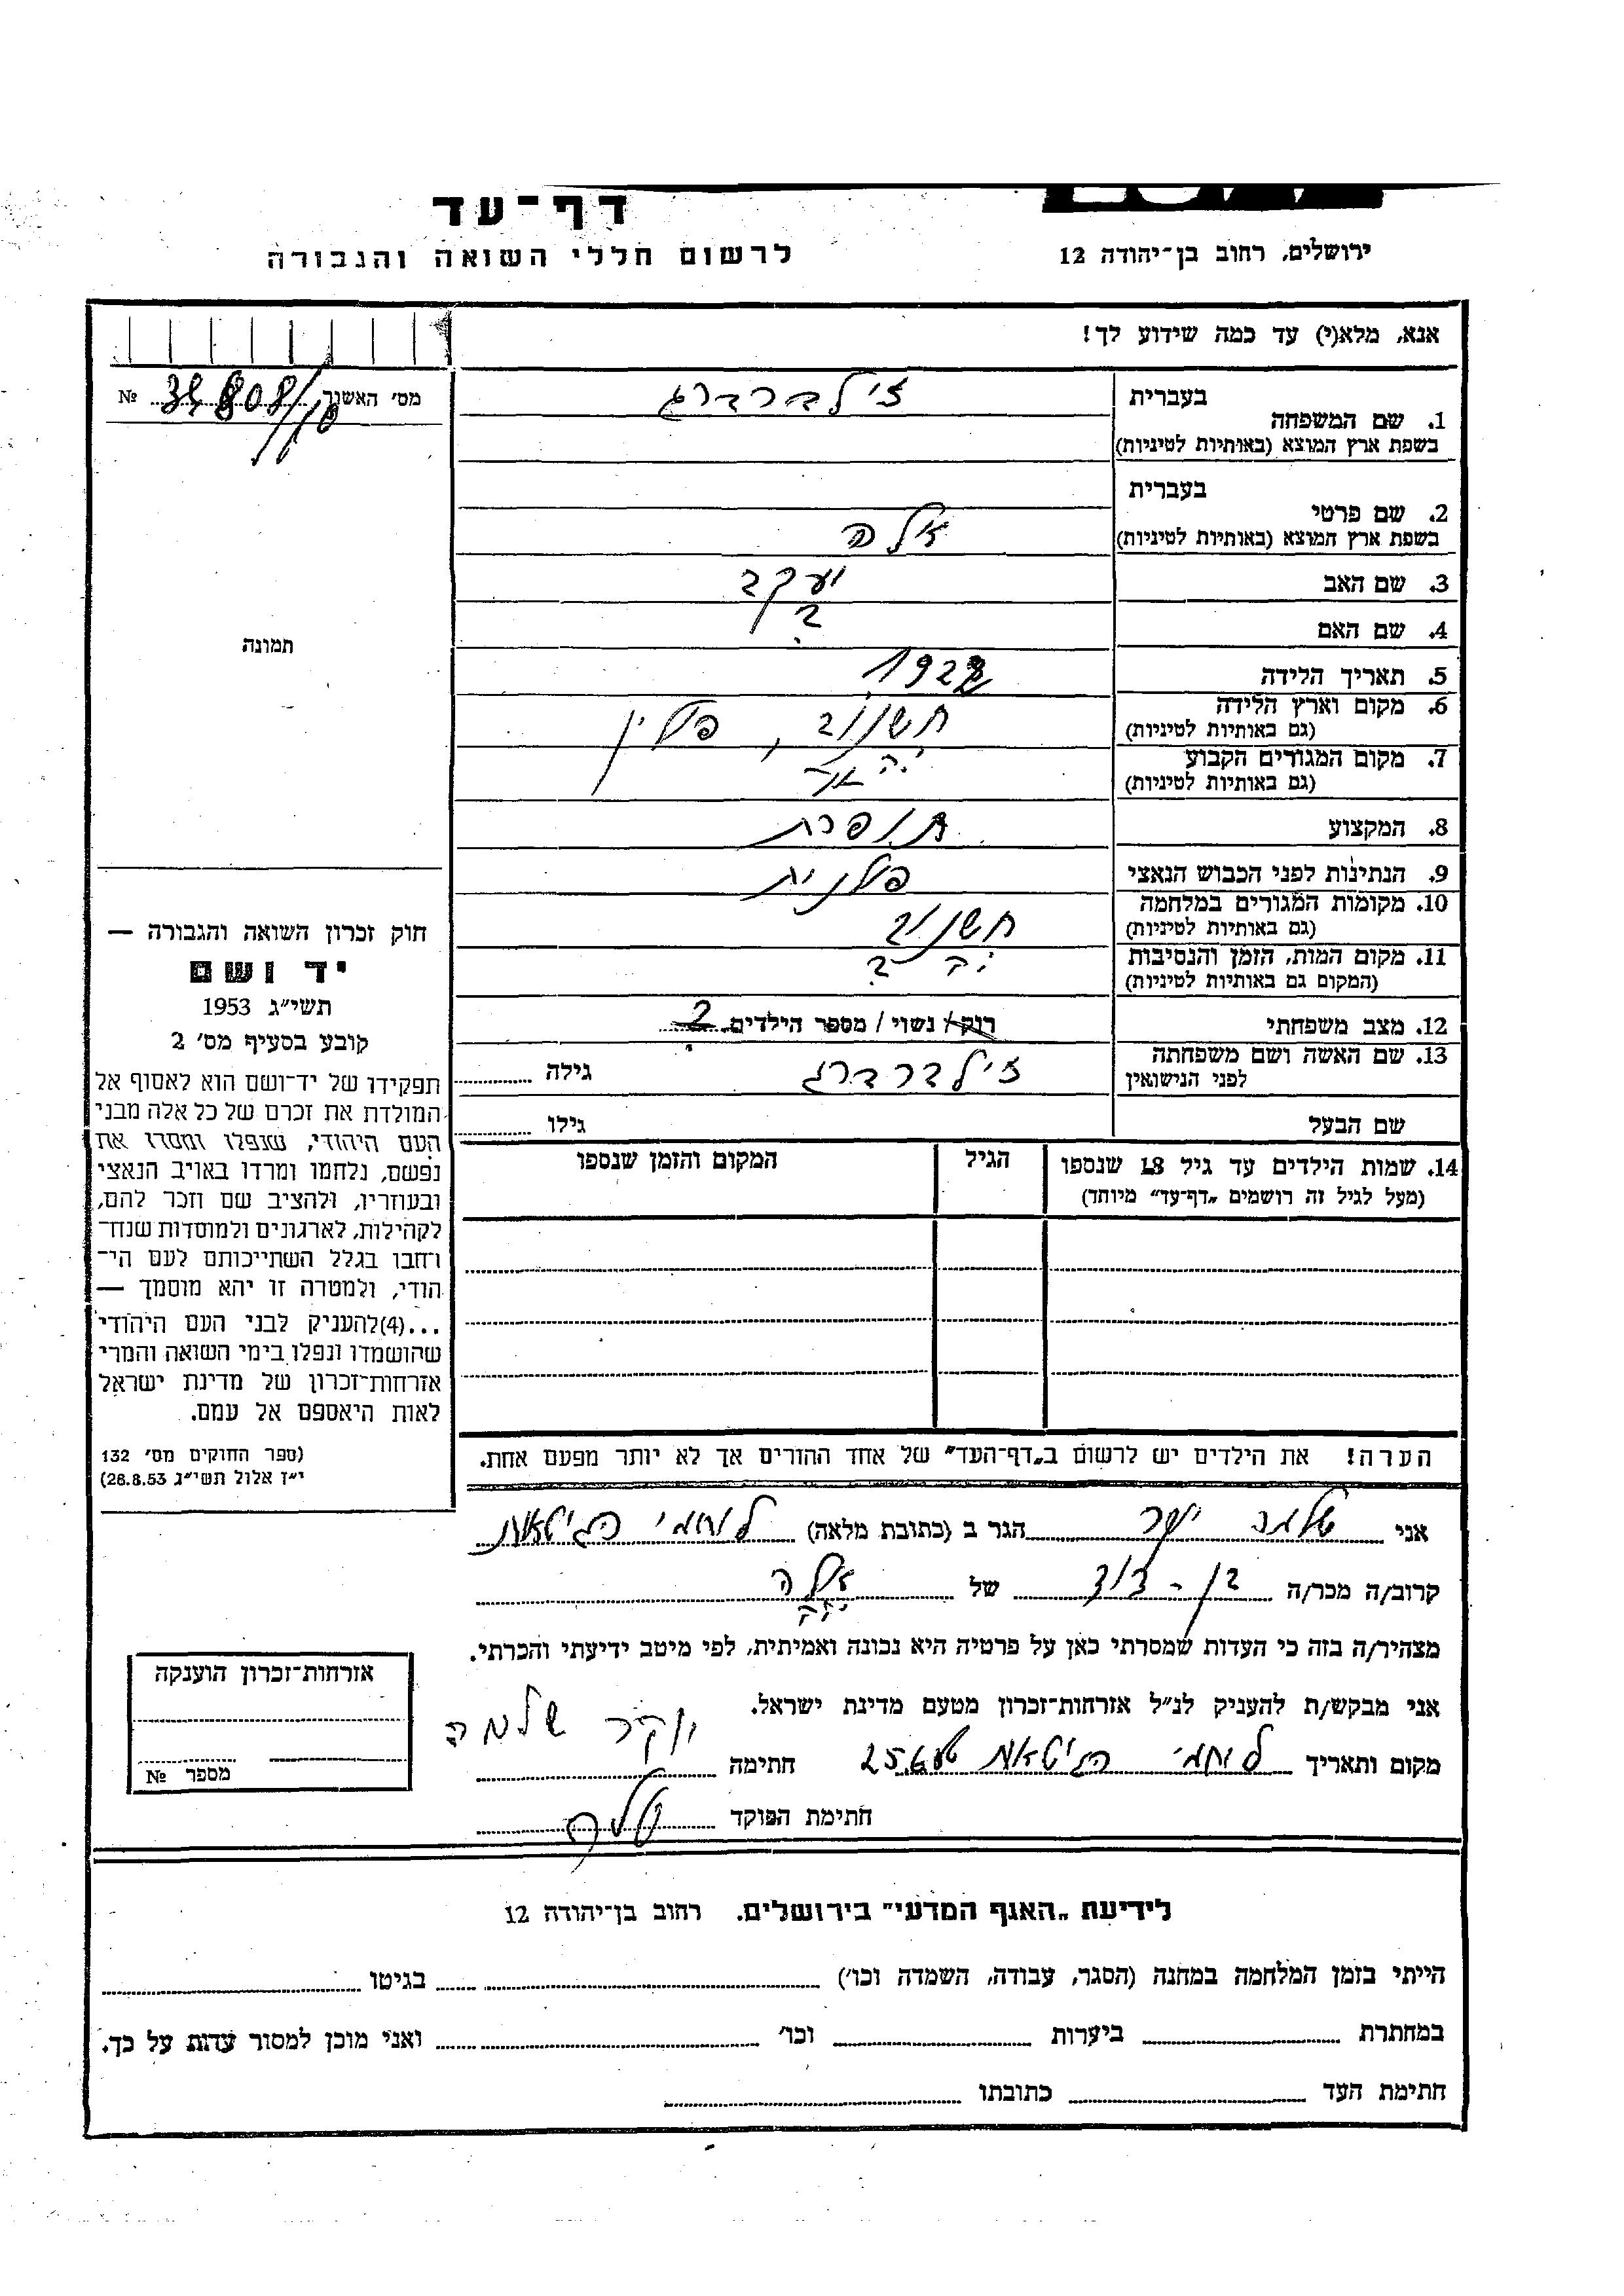 דף־עד
לרשום חללי השואה והגבורה
ירושלים, רחוב בן־יהודה 12
אנא, מלא(י) עד כמה שידוע לך!
מס׳ האשור № 34808
1. שם המשפחה בעברית זילברברג
בשפת ארץ המוצא (באותיות לטיניות)
2. שם פרטי בעברית
בשפת ארץ המוצא (באותיות לטיניות)
3. שם האב יעקב
4. שם האם ?
5. תאריך הלידה 1922
6. מקום וארץ הלידה חשנוב, פולין
(גם באותיות לטיניות)
7. מקום המגורים הקבוע
(גם באותיות לטיניות)
8. המקצוע תופרת
9. הנתינות לפני הכבוש הנאצי פולנית
10. מקומות המגורים במלחמה חשנוב
(גם באותיות לטיניות)
11. מקום המות, הזמן והנסיבות ?
(המקום גם באותיות לטיניות)
12. מצב משפחתי רווק / נשוי / מספר הילדים ?
13. שם האשה ושם משפחתה
לפני הנישואין זילברברג גילה
שם הבעל גילו
14. שמות הילדים עד גיל 18 שנספו הגיל המקום והזמן שנספו
(מעל לגיל זה רושמים „דף־עד” מיוחד)
הערה! את הילדים יש לרשום ב„דף־העד” של אחד ההורים אך לא יותר מפעם אחת.
תמונה
חוק זכרון השואה והגבורה —
יד ושם
תשי״ג 1953
קובע בסעיף מס׳ 2
תפקידו של יד־ושם הוא לאסוף אל
המולדת את זכרם של כל אלה מבני
העם היהודי, שנפלו ומסרו את
נפשם, נלחמו ומרדו באויב הנאצי
ובעוזריו, ולהציב שם וזכר להם,
לקהילות, לארגונים ולמוסדות שנח־
רחבו בגלל השתייכותם לעם הי־
הודי, ולמטרה זו יהא מוסמך —
...(4)להעניק לבני העם היהודי
שהושמדו ונפלו בימי השואה והמרי
אזרחות־זכרון של מדינת ישראל
לאות היאספם אל עמם.
(ספר החוקים מס׳ 132
י״ז אלול תשי״ג 26.8.53)
אני שלמה הגר ב (כתובת מלאה) לוחמי הגיטאות
קרוב/ה מכר/ה בן-דוד של
מצהיר/ה בזה כי העדות שמסרתי כאן על פרטיה היא נכונה ואמיתית, לפי מיטב ידיעתי והכרתי.
אני מבקש/ת להעניק לנ״ל אזרחות־זכרון מטעם מדינת ישראל.
מקום ותאריך לוחמי הגיטאות חתימה שלמה
חתימת הפוקד
אזרחות־זכרון הוענקה
מספר №
לידיעת „האגף המדעי” בירושלים. רחוב בן־יהודה 12
הייתי בזמן המלחמה במחנה (הסגר, עבודה, השמדה וכו׳) בגיטו
במחתרת ביערות וכו׳ ואני מוכן למסור עדות על כך.
חתימת העד כתובתו